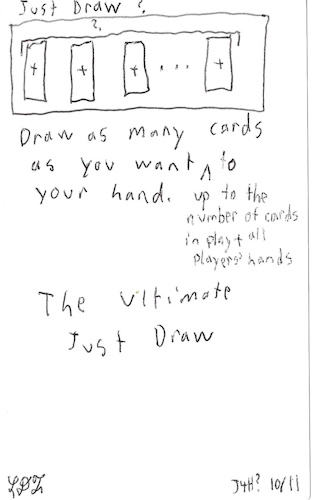 Just Draw ?
?
+ + + ... +
Draw as many cards
as you want ^ to
your hand. up to the
number of cards
in play + all
players' hands
The Ultimate
Just Draw
J4H? 10/11